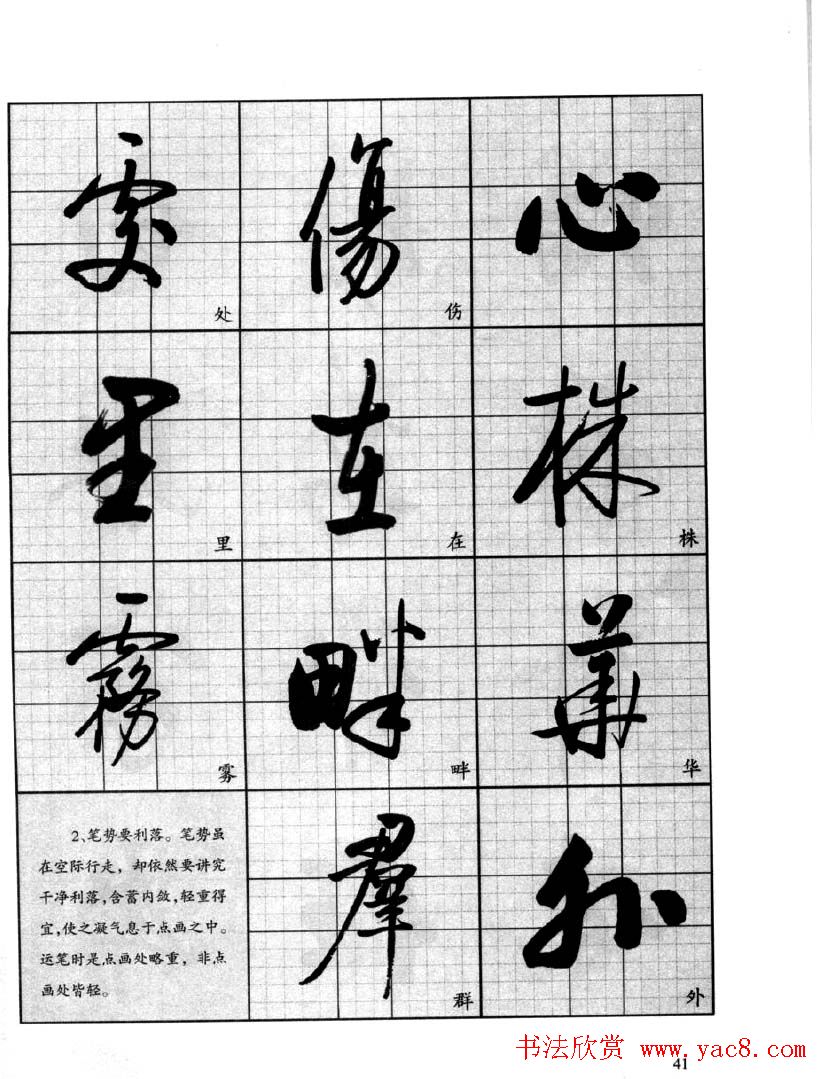 處 傷 心
处 伤
里 在 株
里 在 株
霧 畔 華
雾 畔 华
羣 外
群 外
2、笔势要利落。笔势虽
在空际行走，却依然要讲究
干净利落,含蓄内敛,轻重得
宜,使之凝气息于点画之中。
运笔时是点画处略重，非点
画处皆轻。
书法欣赏 www.yac8.com
41